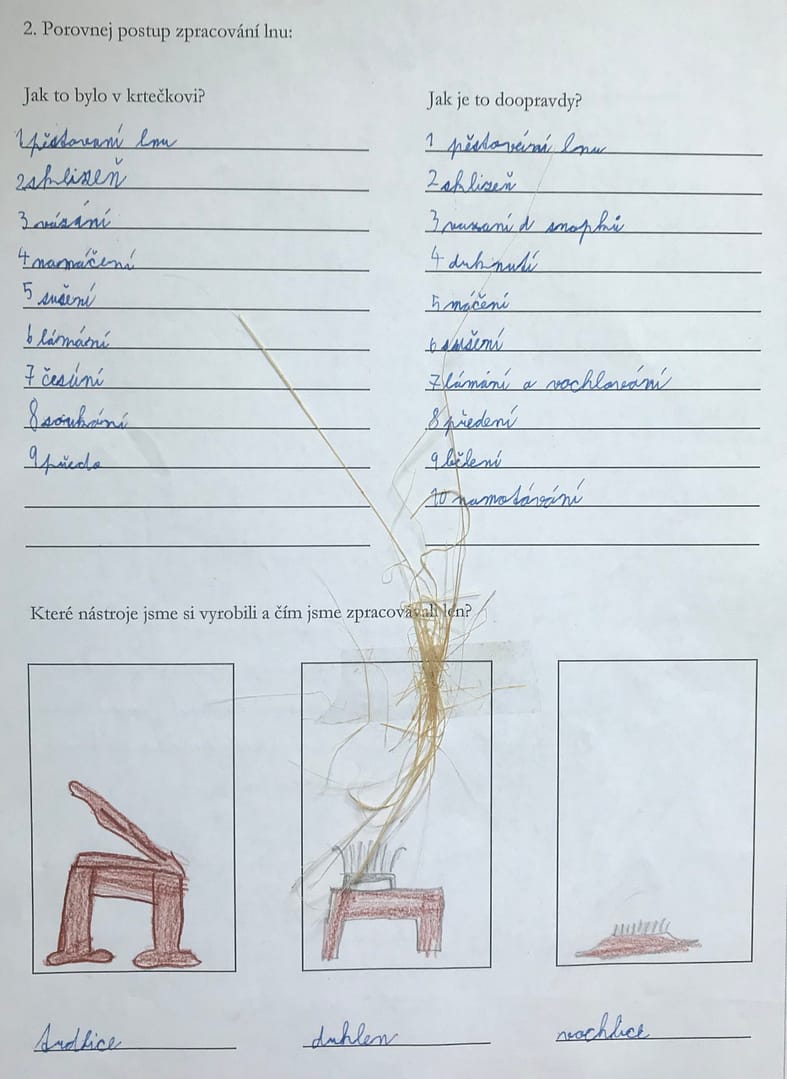 2. Porovnej postup zpracování lnu:
Jak to bylo v krtečkovi?
1 pěstovaní lnu
2 sklizeň
3 vázání
4 namáčení
5 sušení
6 lámání
7 česání
8 soukání
9 předo
Jak je to doopravdy?
1 pěstování lnu
2 sklizeň
3 vazaní d snopků
4 duhnutí
5 máčení
6 sušení
7 lámání a vochlování
8 předení
9 bělení
10 namotávání
Které nástroje jsme si vyrobili a čím jsme zpracovávali len?
trdlice
duhlen
vochlice